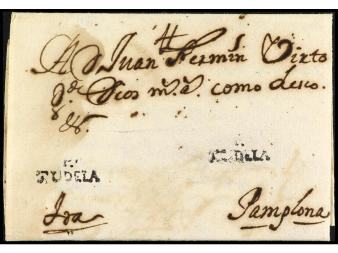 4
A D. Juan Fermin Virto
q.e Dios m.s a.s como deseo.
N.
TUDELA
N.
TUDELA
Pamplona